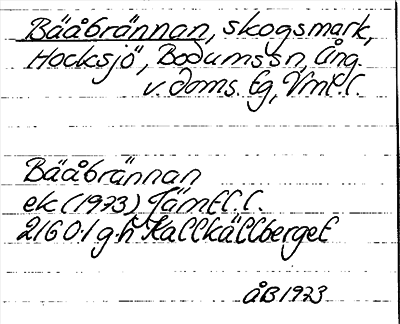 Bäåbrännan, skogsmark,
Hocksjö, Bodumssn, Ång.
v. doms. Eg, Vnl. l.
Bäåbrännan
ek (1973) Jämtl. l.
2160:1 g.h. Kallkällberget
ÅB 1973